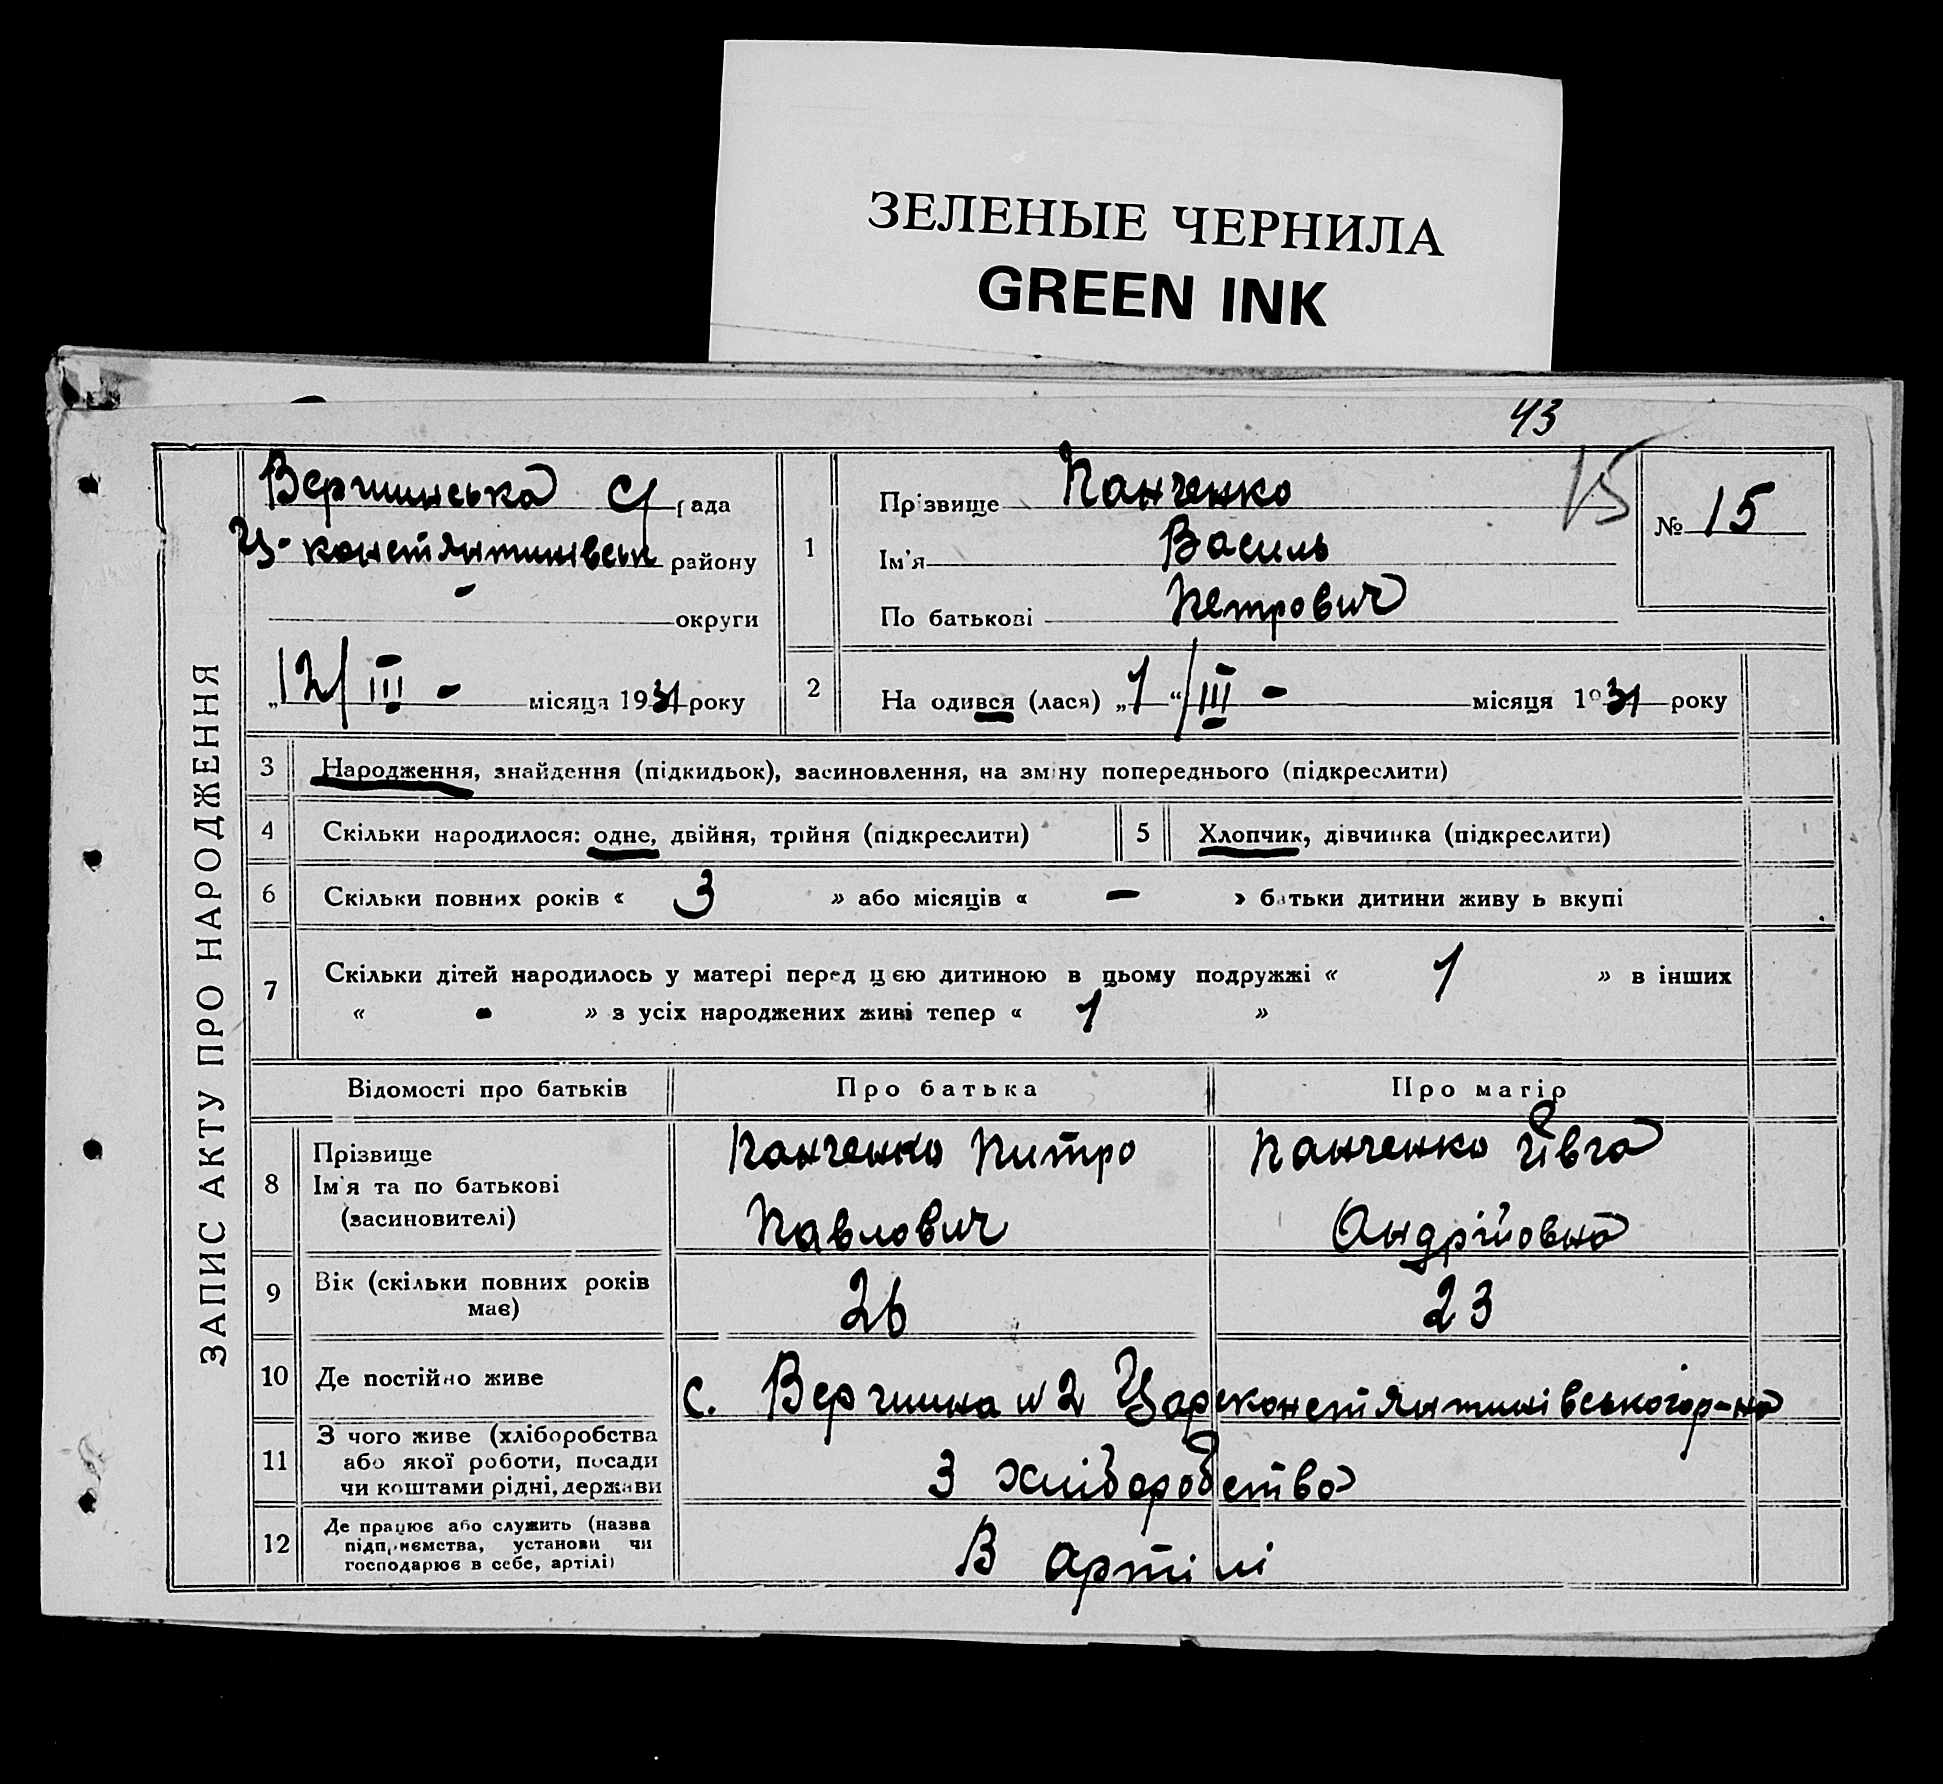 ЗЕЛЕНЫЕ ЧЕРНИЛА
GREEN INK
43
ЗАПИС АКТУ ПРО НАРОДЖЕННЯ
Вершинська С/ рада
Ц-констянтинівськ району
- округи
„12/III - місяця 1931 року
1
Прізвище Панченко
Ім'я Василь
По батькові Петрович
15
№ 15
2
На одився (лася) „1“/III - місяця 1931 року
3 Народження, знайдення (підкидьок), засиновлення, на зміну попереднього (підкреслити)
4 Скільки народилося: одне, двійня, трійня (підкреслити)
5 Хлопчик, дівчинка (підкреслити)
6 Скільки повних років « 3 » або місяців « - » батьки дитини живуть вкупі
7 Скільки дітей народилось у матері перед цією дитиною в цьому подружжі « 1 » в інших
« - » з усіх народжених живі тепер « 1 »
Відомості про батьків Про батька Про матір
8 Прізвище
Ім'я та по батькові
(засиновителі)
Панченко Питро
Павлович
Панченко Ївга
Андрійовна
9 Вік (скільки повних років
має)
26 23
10 Де постійно живе
с. Вершина №2 Цареконстянтинівськогор-на
11 З чого живе (хліборобства
або якої роботи, посади
чи коштами рідні, держави
З хліборобства
12 Де працює або служить (назва
підприємства, установи чи
господарює в себе, артілі)
В артілі